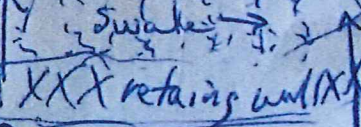 Swale
XXX retaing wall XX